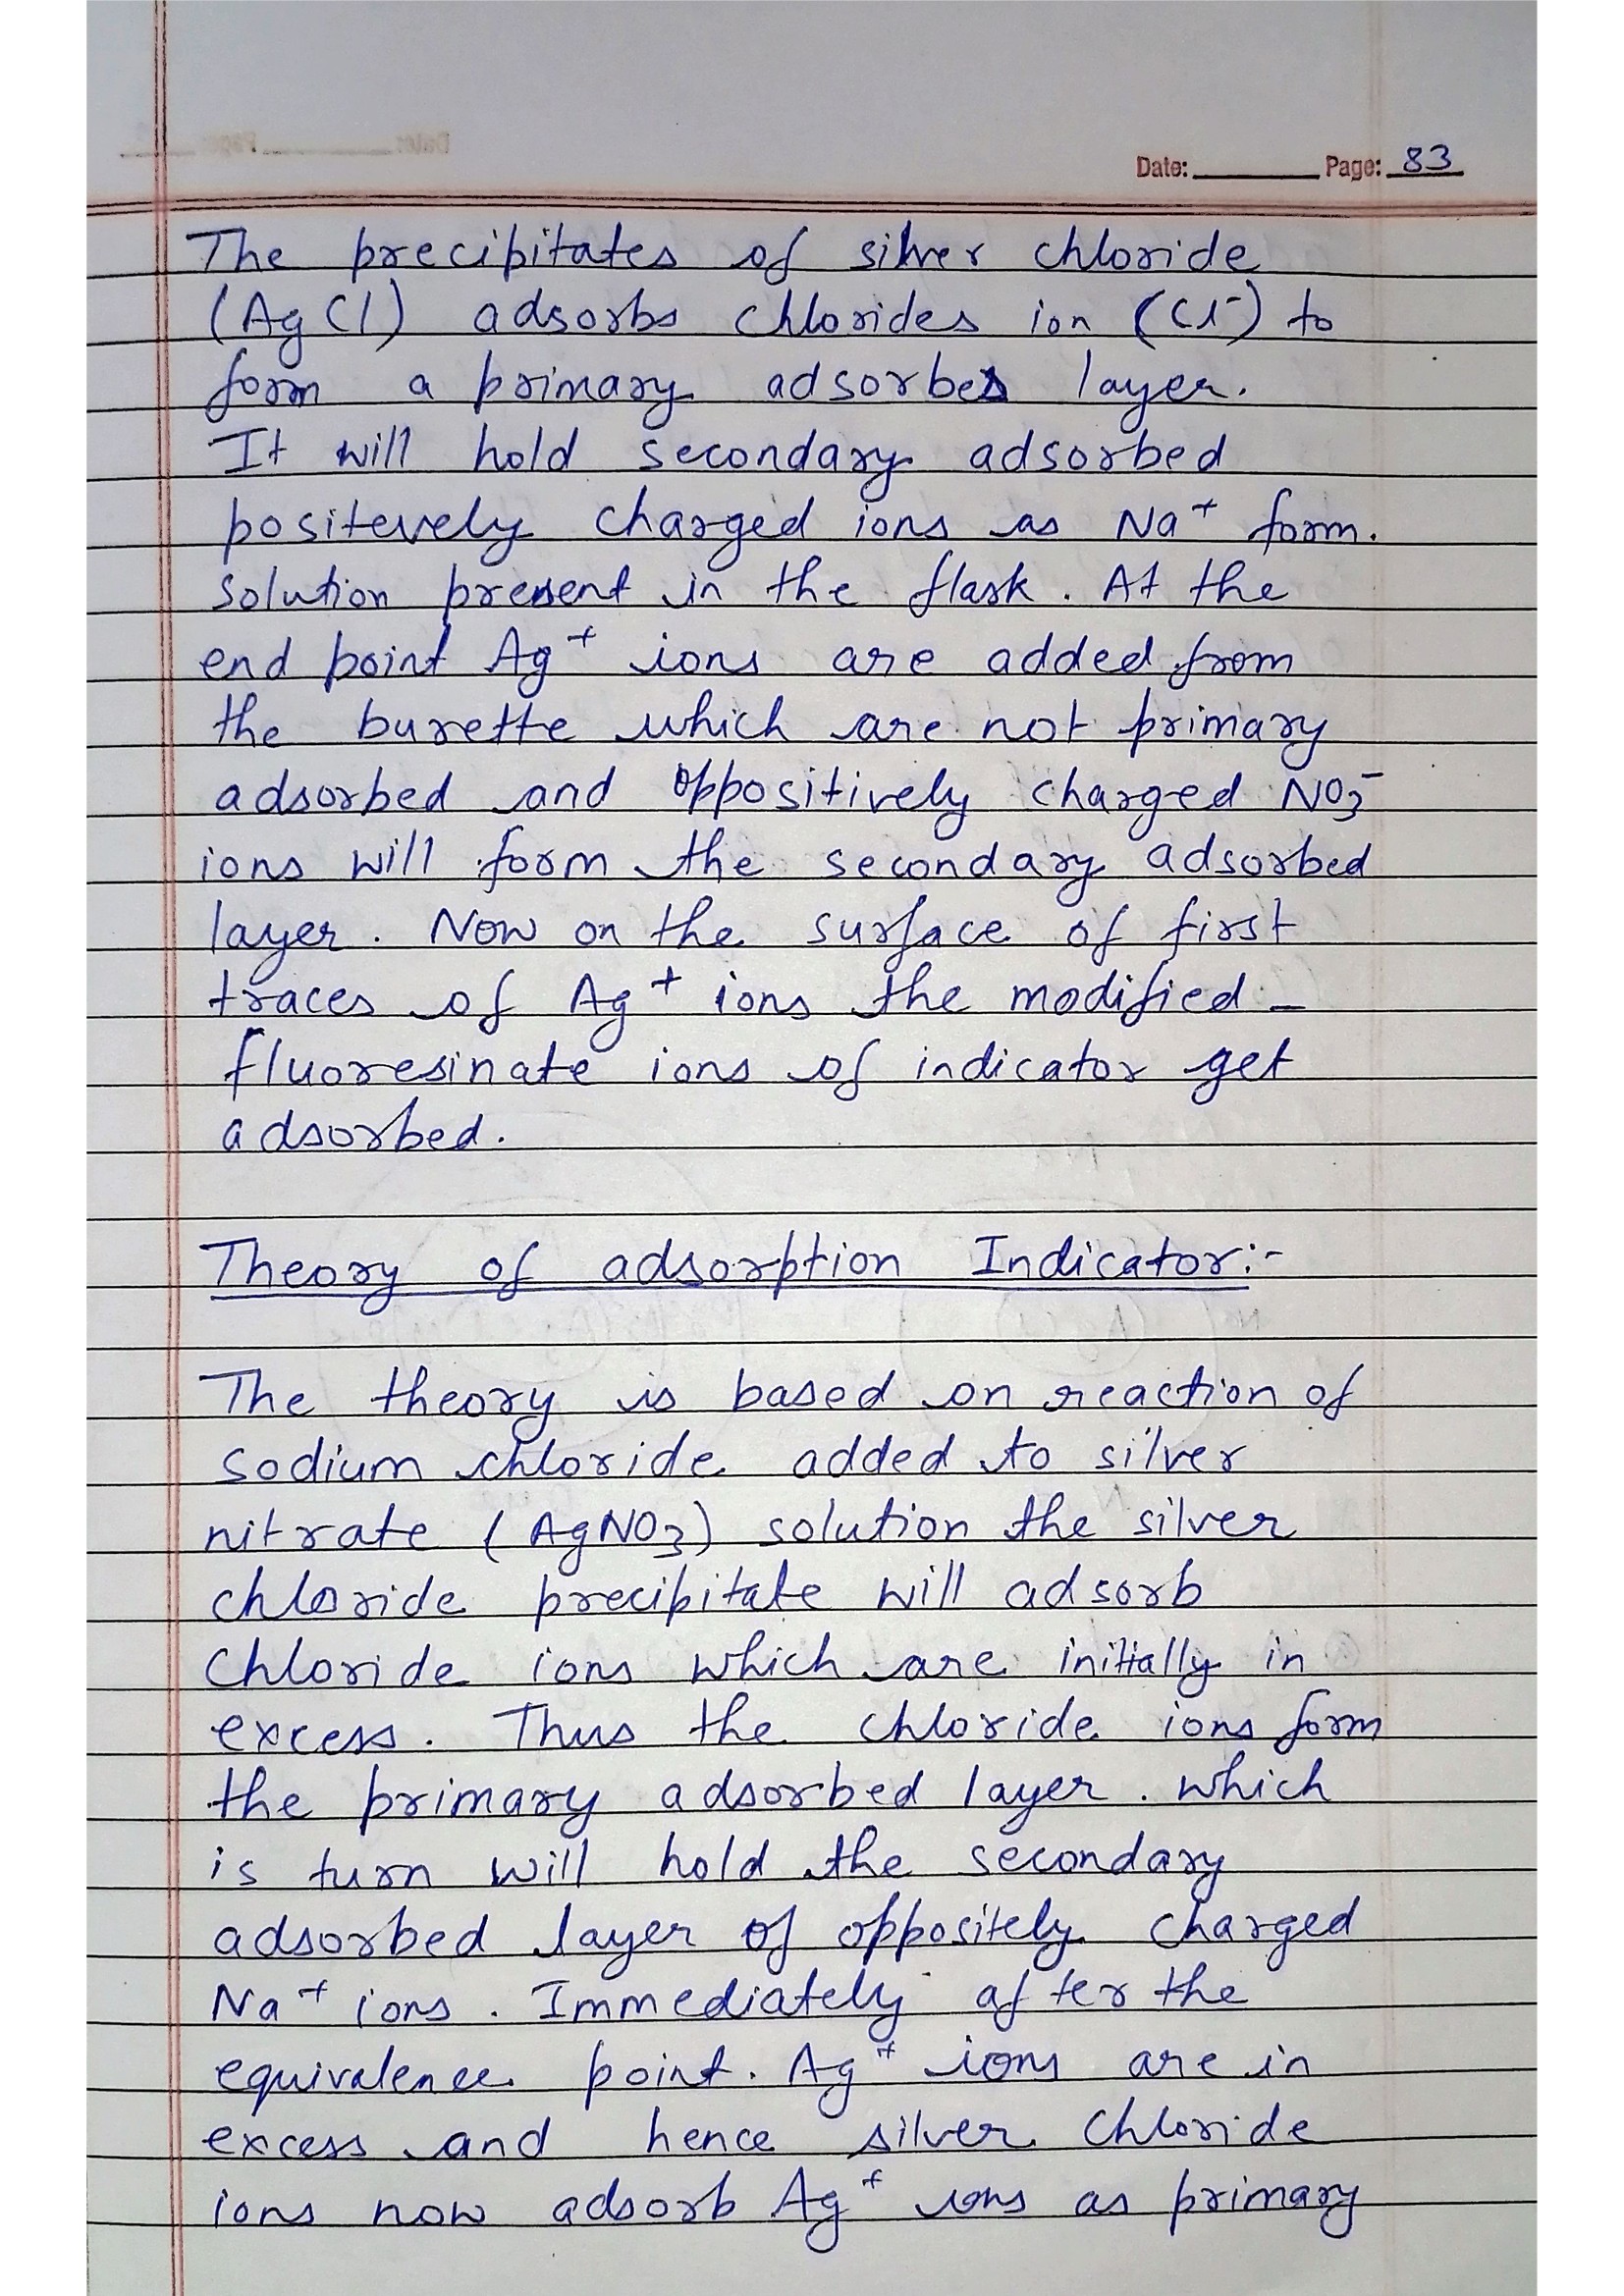 Date: Page: 83
The precipitates of silver chloride
(AgCl) adsorbs chlorides ion (Cl⁻) to
form a primary adsorbes layer.
It will hold secondary adsorbed
positevely charged ions as Na⁺ form.
solution present in the flask. At the
end point Ag⁺ ions are added from
the burette which are not primary
adsorbed and oppositively charged NO₃⁻
ions will form the secondary adsorbed
layer. Now on the surface of first
traces of Ag⁺ ions the modified -
fluoresinate ions of indicator get
adsorbed.
Theory of adsorption Indicator:-
The theory is based on reaction of
sodium chloride added to silver
nitrate (AgNO₃) solution the silver
chloride precipitate will adsorb
chloride ions which are initially in
excess. Thus the chloride ions form
the primary adsorbed layer. which
is turn will hold the secondary
adsorbed layer of oppositely charged
Na⁺ ions. Immediately after the
equivalence point. Ag⁺ ions are in
excess and hence silver chloride
ions now adsorb Ag⁺ ions as primary